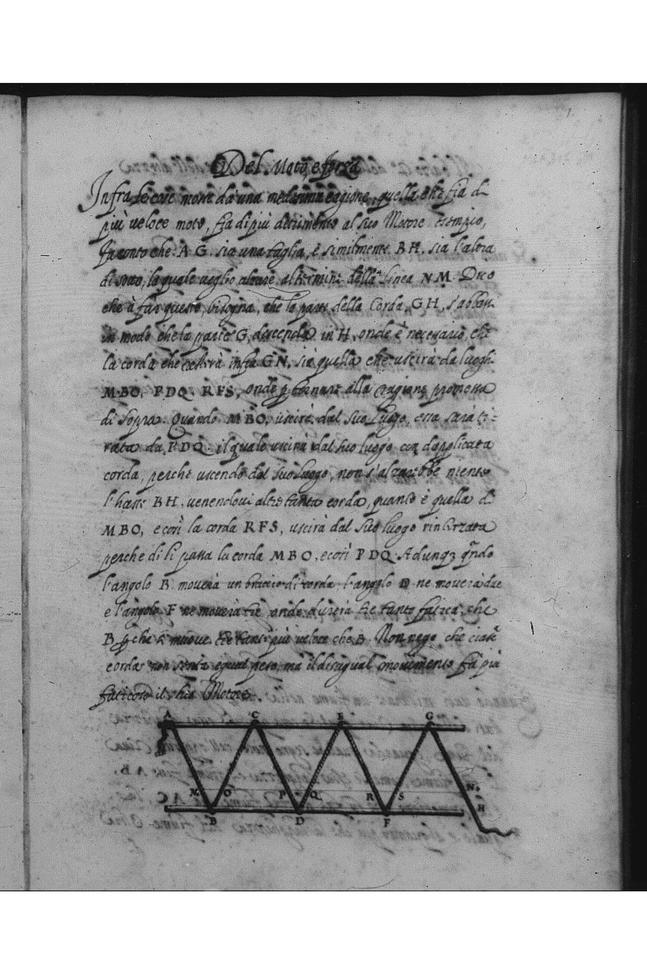 Del Moto, e forza
Infra le cose mosse da una medesima cagione, quella che fia di
più veloce moto, fia di più detrimento al suo Motore. esempio,
che A G. sia una taglia, e similmente BH, sia l'altra
di sotto, la quale voglio alzare al termine della linea N M. Dico
che à far questo, bisogna, che la parte della Corda, GH, s'abbassi
in modo che la parte G, descenda in H, onde è necessario, che
la corda che cresierà infra GN, sia quella che uscirà da luoghi
MBO, PDQ. RFS, onde p tornare alla Cagione promessa
di sopra. Quando MBO, uscirà dal suo luogo, essa sarà ti-
rata da PDQ. il quale uscirà dal suo luogo con dopplicata
corda, perche uscendo dal suo luogo, non s'alzarebbe niente
l'haste BH, venendovi altretanta corda, quanto è quella di
MBO, e così la corda RFS, uscirà dal suo luogo rinterzata
perche di li passa la corda MBO, e così PDQ. Adunqz qñdo
l'angolo B. moverà un braccio di corda l'angolo D ne moverà due
e l'angolo F ne moverà tre, onde durerà tre tanti fatica che
B pche si muove tre tanti più veloce che B. Non nego che ciasc
corda non senta equal peso, ma il disigual movimento fia più
faticoso il suo Motore.
A C E G
M O P Q R S N
H
B D F